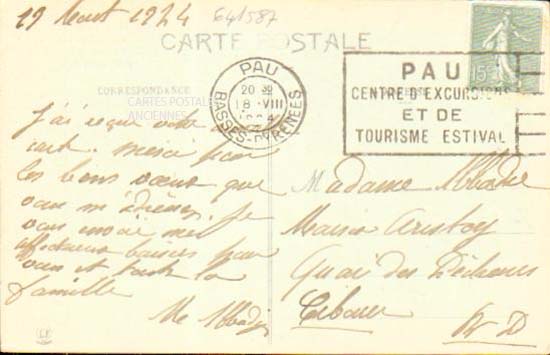 19 Aout 1924
641587
CARTE POSTALE
PAU
20
18 VIII
BASSES-PYRÉNÉES
15c
PAU
CENTRE D'EXCURSIONS
ET DE
TOURISME ESTIVAL
CORRESPONDANCE
CARTES POSTALES
ANCIENNES
J'ai reçu votre
carte. merci pour
les bons voeux que
vous m'
je
vous envoie mes
affectueux baisers pour
vous et toute la
famille
Me Abbadie
Madame Abbadie
Maison Aristoy
Quai des Pêcheurs
Ciboure